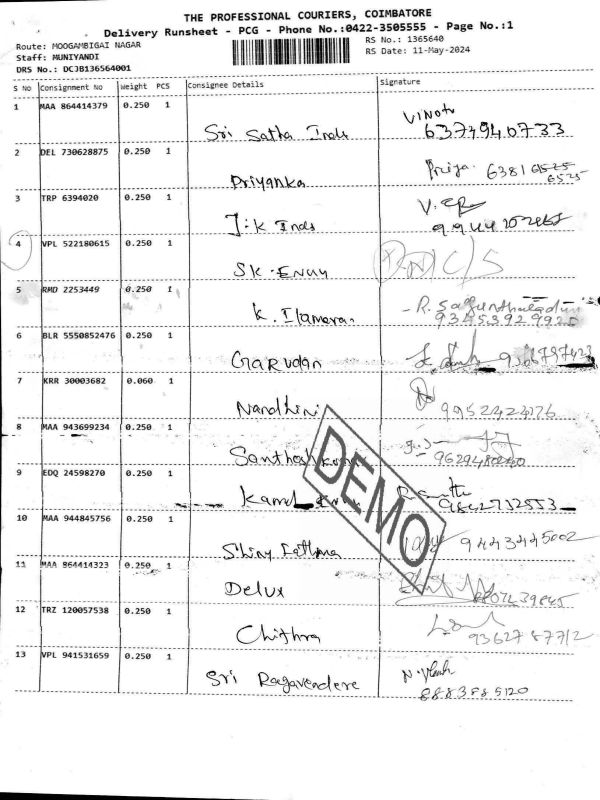 THE PROFESSIONAL COURIERS, COIMBATORE
Delivery Runsheet - PCG - Phone No.:0422-3505555 - Page No.:1
Route: MOOGAMBIGAI NAGAR
RS No.: 1365640
Staff: MUNIYANDI
RS Date: 11-May-2024
DRS No.: DCJB136564001
S No Consignment No Weight PCS Consignee Details Signature
1 MAA 864414379 0.250 1
Vinoth
Sri Satha Inds 6374940733
2 DEL 730628875 0.250 1
Priya. 6381
Priyanka 6525
3 TRP 6394020 0.250 1
J.K Inds
4 VPL 522180615 0.250 1
D/C/S
SK.
5 RMD 2253449 0.250 1
K. Ilamaran
9345392992
6 BLR 5550852476 0.250 1
Garudan
7 KRR 30003682 0.060 1
Nandhini 9952424176
8 MAA 943699234 0.250 1
Santhosh Kumar
9 EDQ 24598270 0.250 1
Kamal 9842732553
DEMO
10 MAA 944845756 0.250 1
9443445002
Shiny Fathima
11 MAA 864414323 0.250 1
Delux
12 TRZ 120057538 0.250 1
Chithra 9362787712
13 VPL 941531659 0.250 1
Sri Ragavendere
8883585120